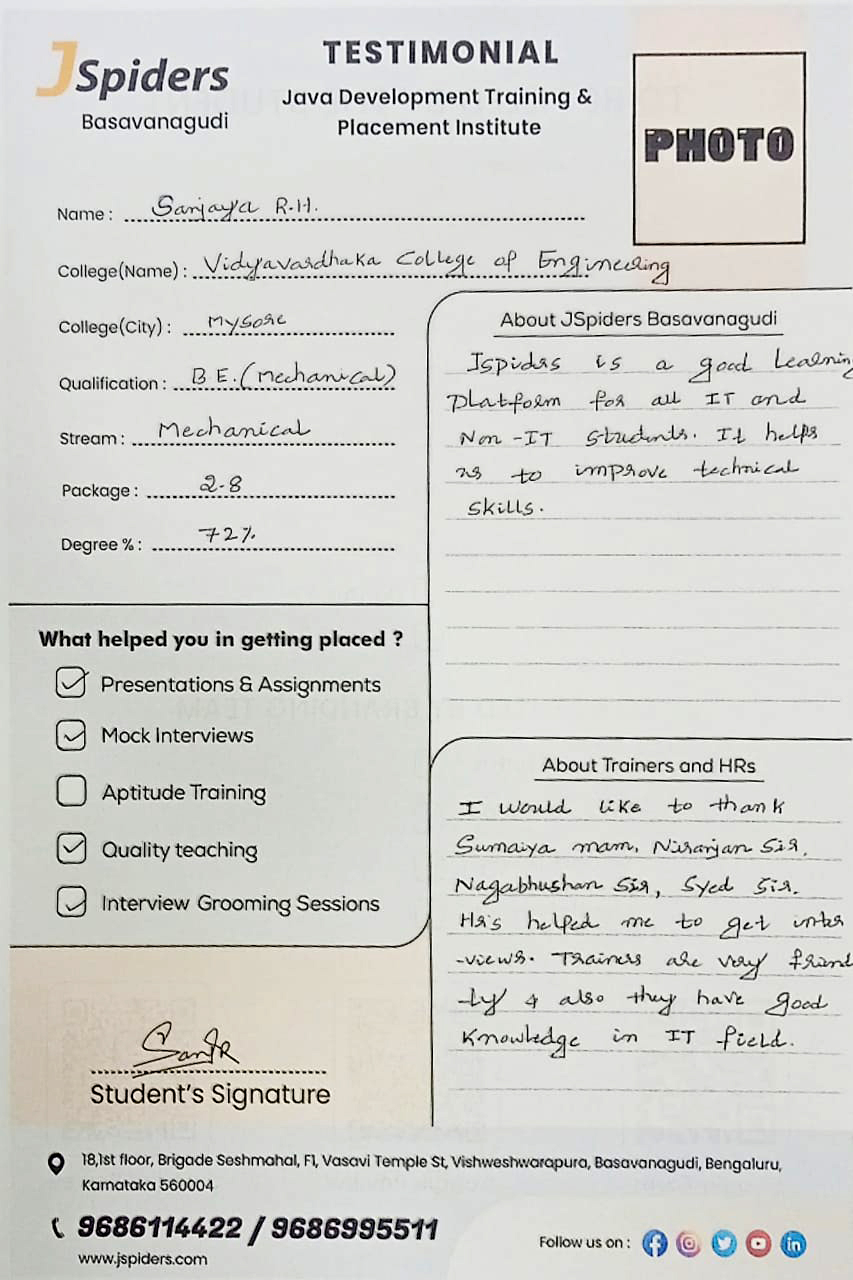 JSpiders
Basavanagudi
TESTIMONIAL
Java Development Training &
Placement Institute
PHOTO
Name : Sanjaya R.H.
College(Name) : Vidyavardhaka College of Engineering
College(City) : Mysore
Qualification : B E. (Mechanical)
Stream : Mechanical
Package : 2.8
Degree % : 72%
What helped you in getting placed ?
Presentations & Assignments
Mock Interviews
Aptitude Training
Quality teaching
Interview Grooming Sessions
Student's Signature
About JSpiders Basavanagudi
Jspiders is a good Learning
Platform for all IT and
Non-IT students. It helps
us to improve technical
skills.
About Trainers and HRs
I would like to thank
Sumaiya mam, Niranjan Sir,
Nagabhushan Sir, Syed Sir.
Hr's helped me to get inter
-views. Trainers are very friend
-ly & also they have good
Knowledge in IT field.
18,1st floor, Brigade Seshmahal, F1, Vasavi Temple St, Vishweshwarapura, Basavanagudi, Bengaluru,
Karnataka 560004
9686114422 / 9686995511
www.jspiders.com
Follow us on :